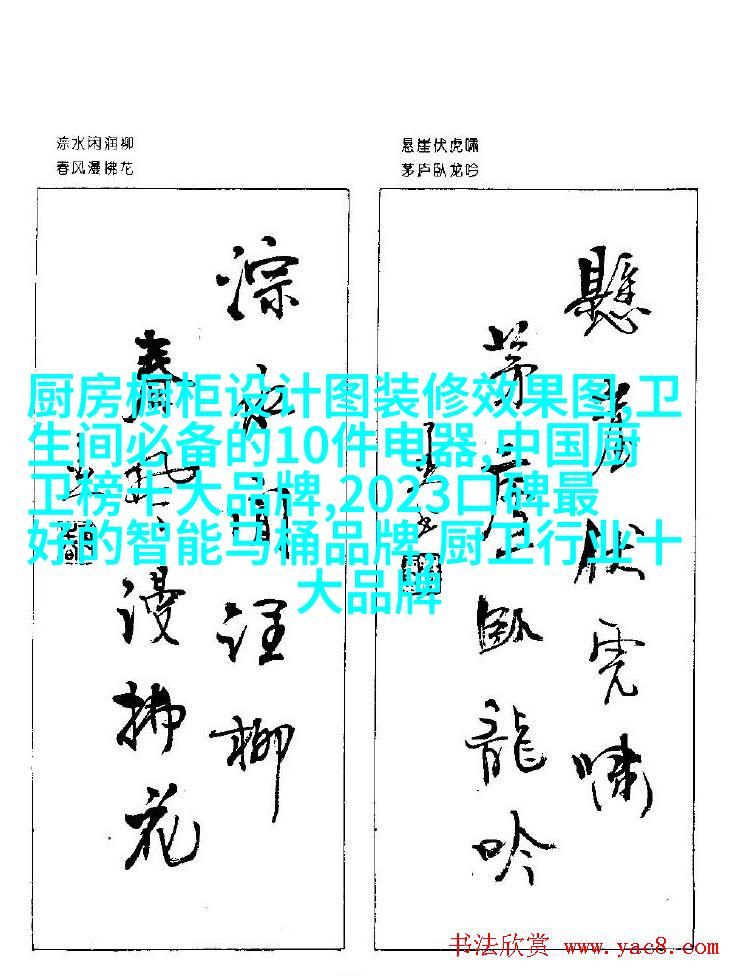 淙水闲润柳
春风漫拂花
悬崖伏虎啸
茅庐卧龙吟
淙水闲润柳
春风漫拂花
懸崖伏虎嘯
茅庐臥龍吟
厨房橱柜设计图装修效果图,卫
生间必备的10件电器,中国厨
卫榜十大品牌,2023口碑最
好的智能马桶品牌 厨卫行业十
大品牌
书法欣赏 www.yac8.com